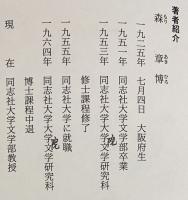 著者紹介
森 章博
一九二五年 七月四日 大阪府生
一九五一年 同志社大学文学部卒業
一九五三年 同志社大学大学院文学研究科
修士課程修了
一九五五年 同志社大学に就職
一九六四年 同志社大学大学院文学研究科
博士課程中退
現在 同志社大学文学部教授